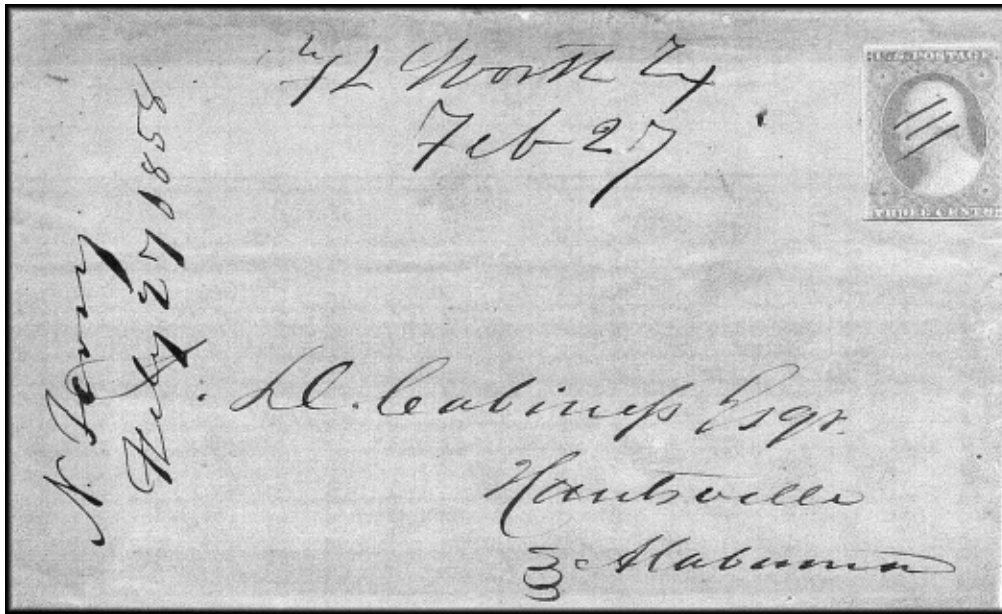 Ft Worth Tx
Feb 27
U.S. POSTAGE
THREE CENTS
N. Terry
Feby 27 1858
Cabiness Esqr.
Huntsville
Alabama